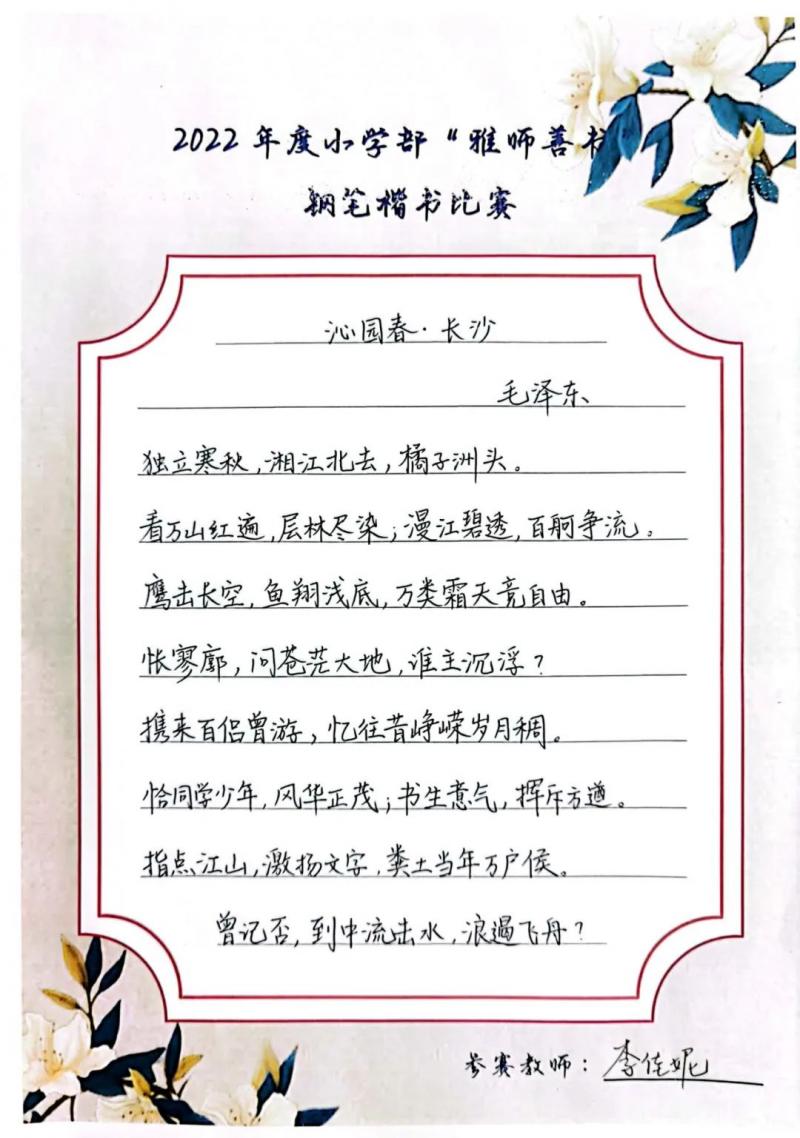 2022年度小学部“雅师善书
钢笔楷书比赛
沁园春·长沙
毛泽东
独立寒秋,湘江北去,橘子洲头。
看万山红遍,层林尽染;漫江碧透,百舸争流。
鹰击长空,鱼翔浅底,万类霜天竞自由。
怅寥廓,问苍茫大地,谁主沉浮?
携来百侣曾游,忆往昔峥嵘岁月稠。
恰同学少年,风华正茂;书生意气,挥斥方遒。
指点江山,激扬文字,粪土当年万户侯。
曾记否,到中流击水,浪遏飞舟?
参赛教师:李佳妮